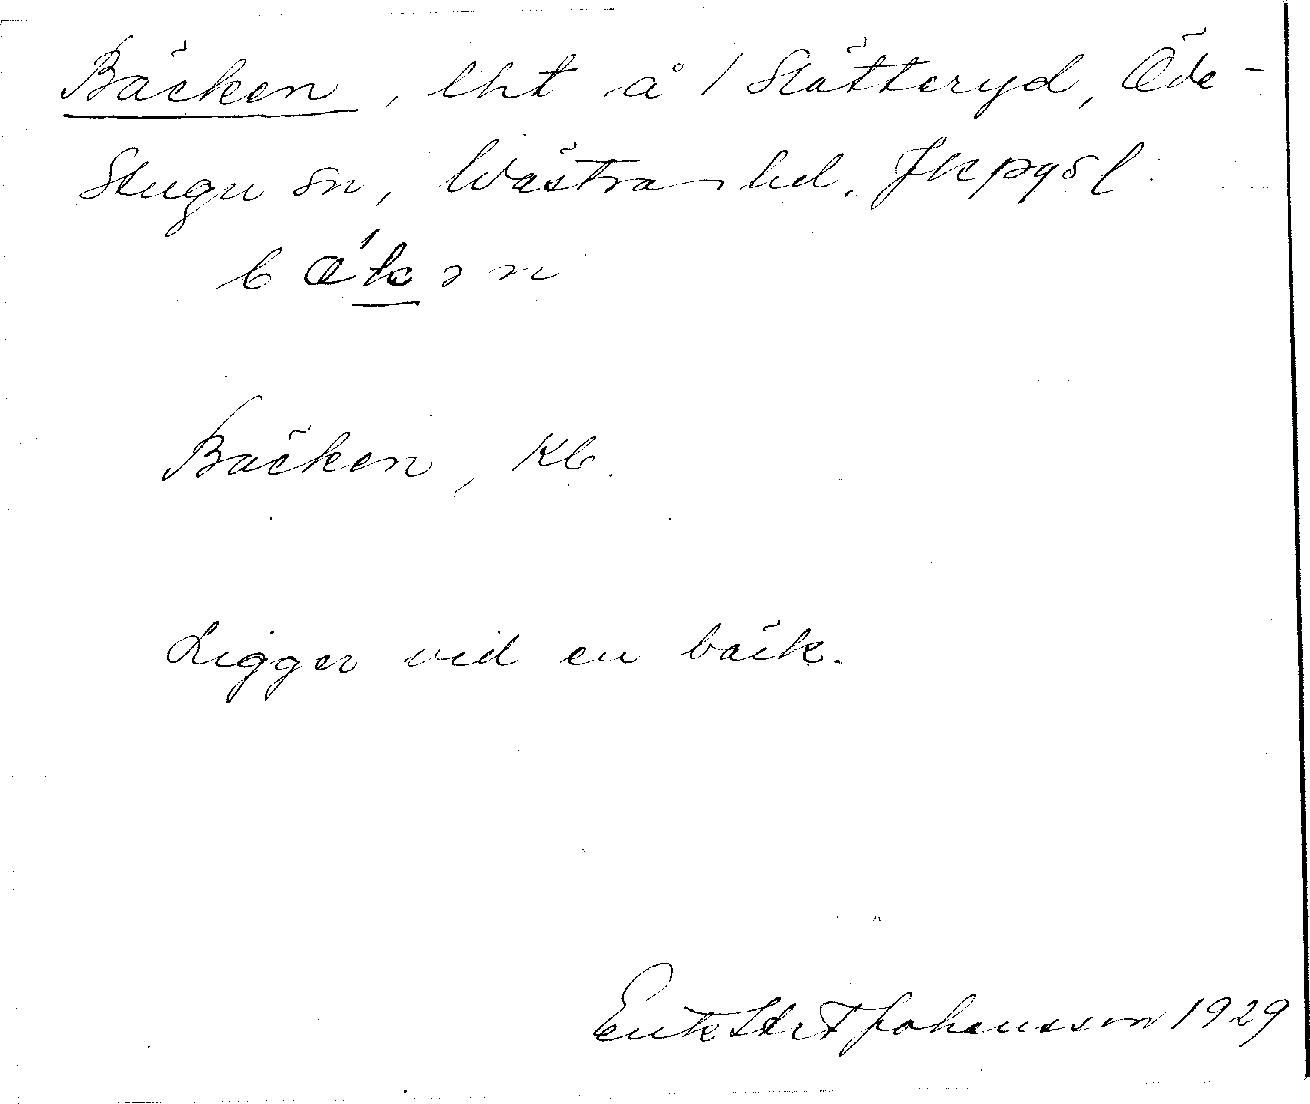 Bäcken, lht å 1 Slätteryd, Öde-
stugu sn, Västra hd. Jkpgs l.
bækən
Bäcken, Kb.
Ligger vid en bäck.
Johansson 1929